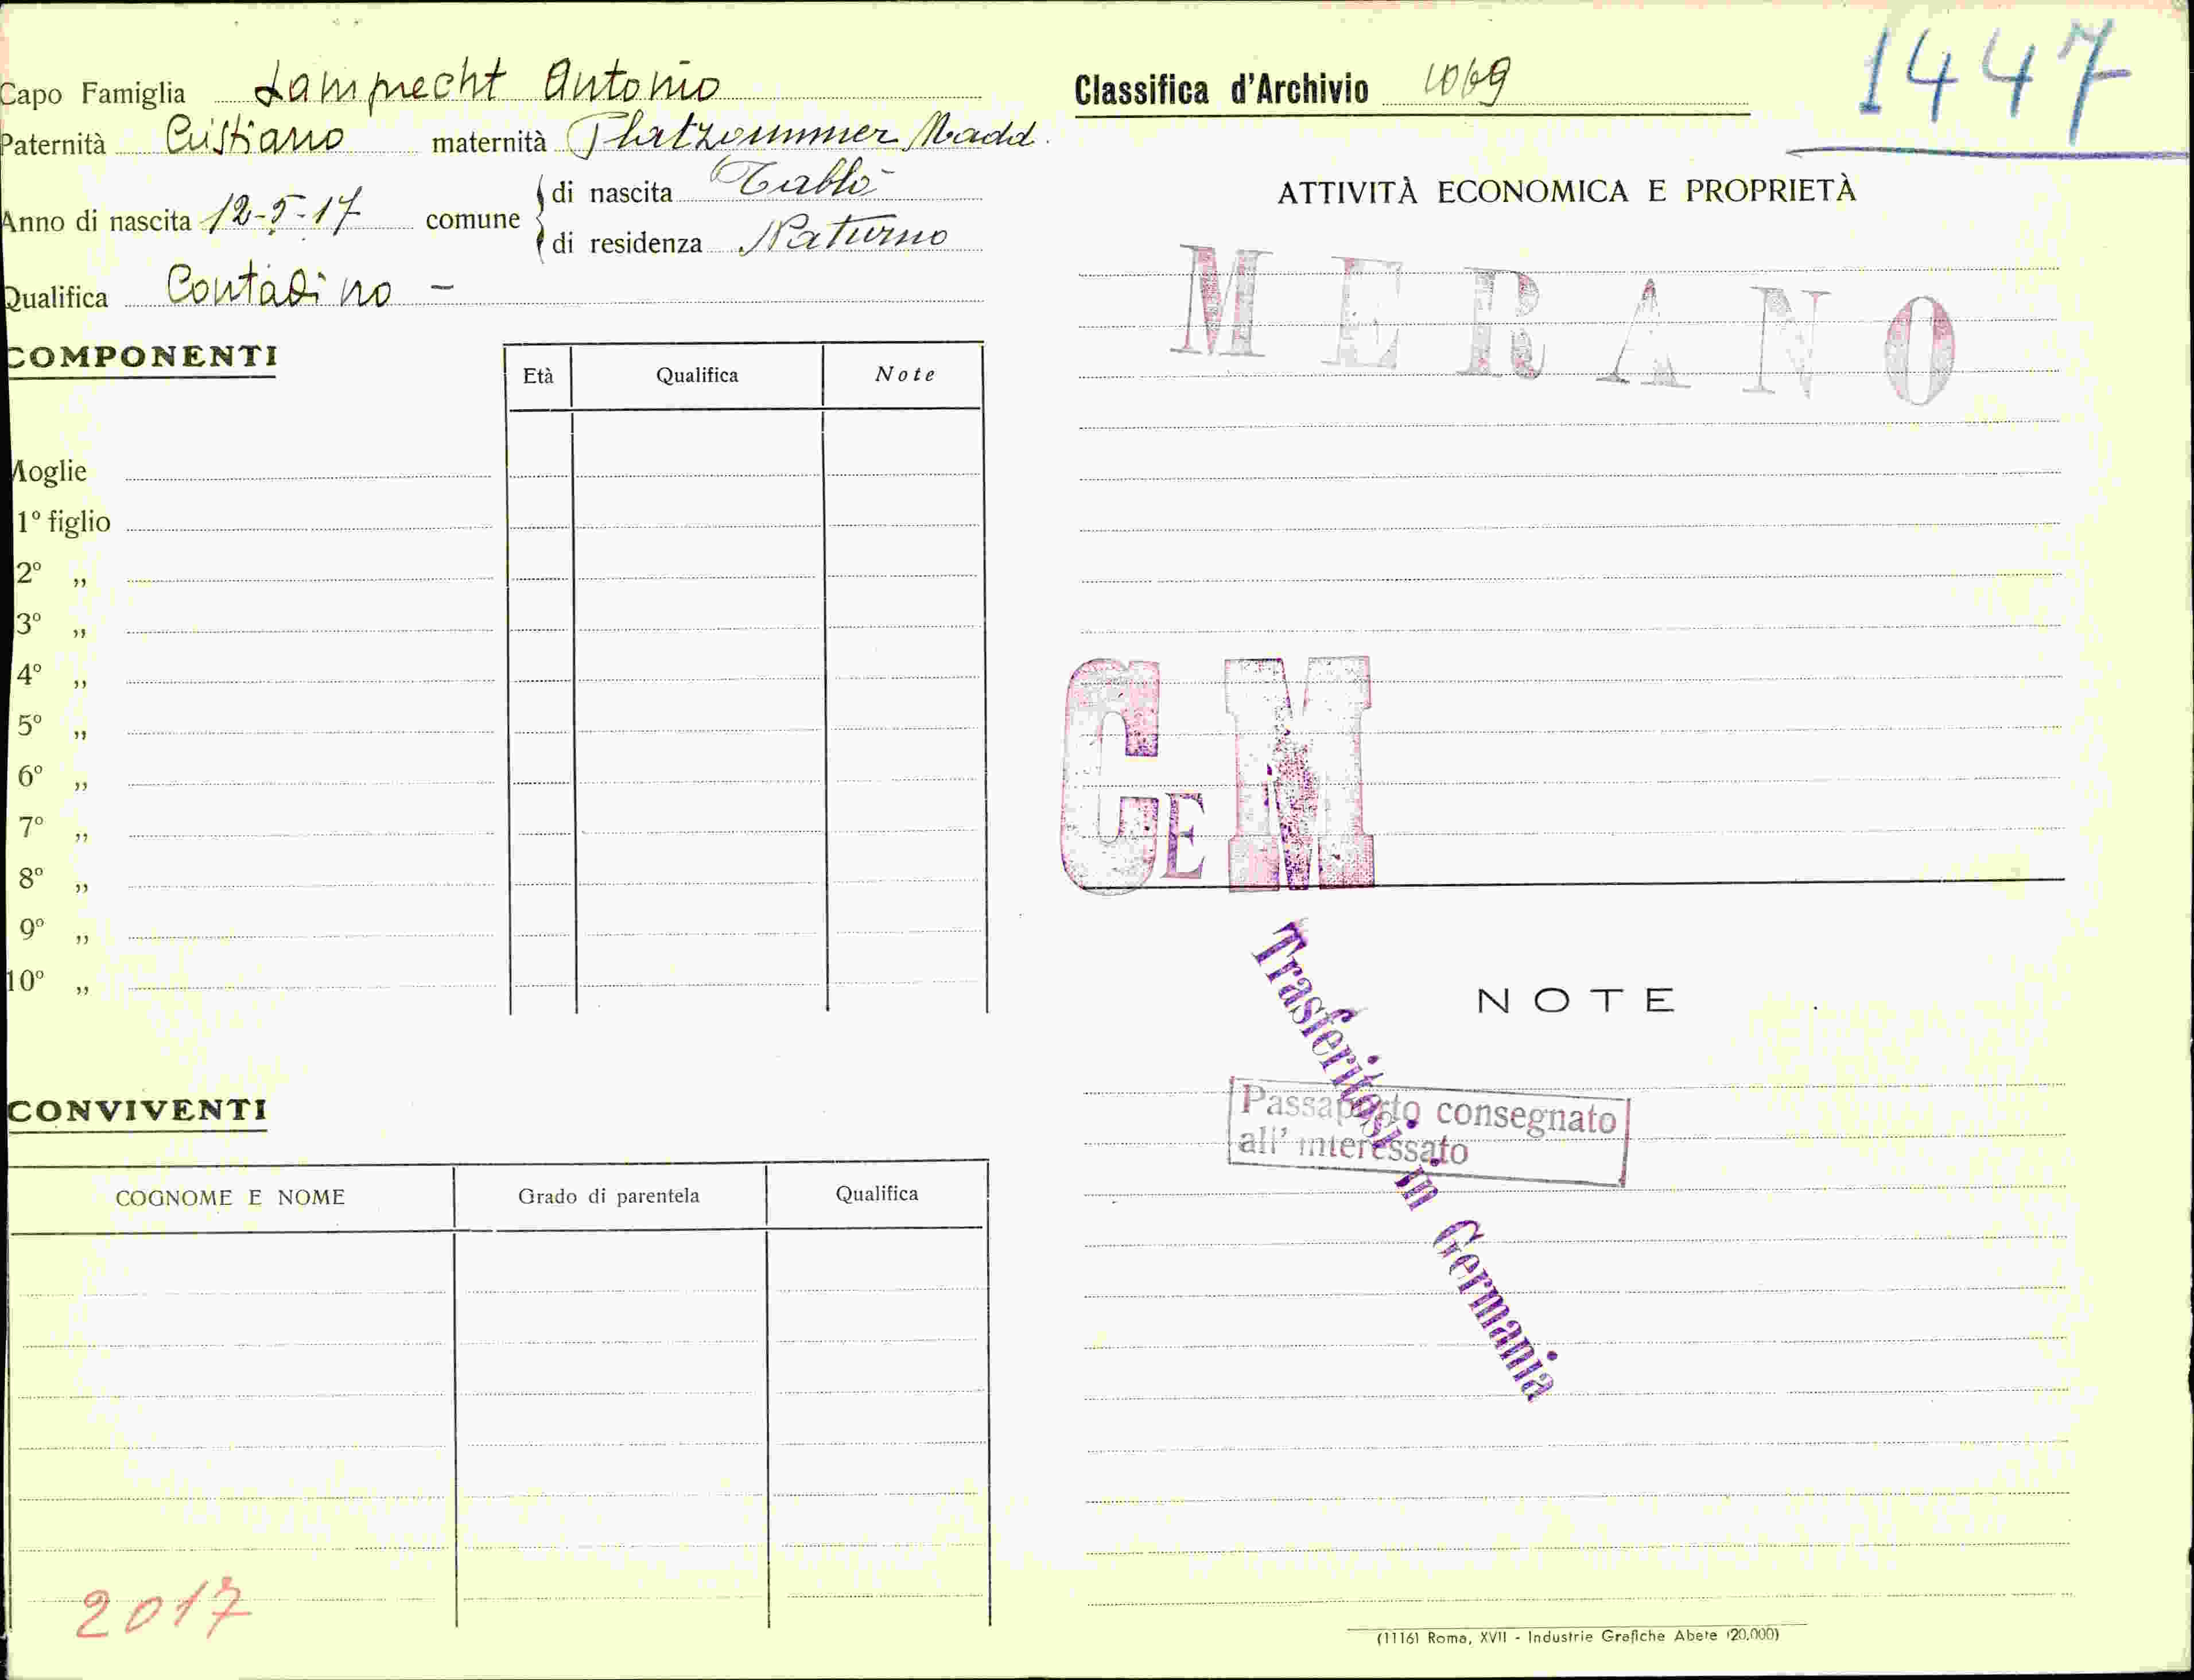 Capo Famiglia Lamprecht Antonio
Paternità Cristiano maternità Platzgummer Madd.
Anno di nascita 12-5-17 comune di nascita Tablà
di residenza Naturno
Qualifica Contadino -
COMPONENTI
Età Qualifica Note
Moglie
1º figlio
2º „
3º „
4º „
5º „
6º „
7º „
8º „
9º „
10º „
CONVIVENTI
COGNOME E NOME Grado di parentela Qualifica
2017
Classifica d'Archivio 1069
1447
ATTIVITÀ ECONOMICA E PROPRIETÀ
MERANO
CEM
NOTE
Trasferitosi in Germania
Passaporto consegnato
all' interessato
(11161 Roma, XVII - Industrie Grafiche Abete (20.000)